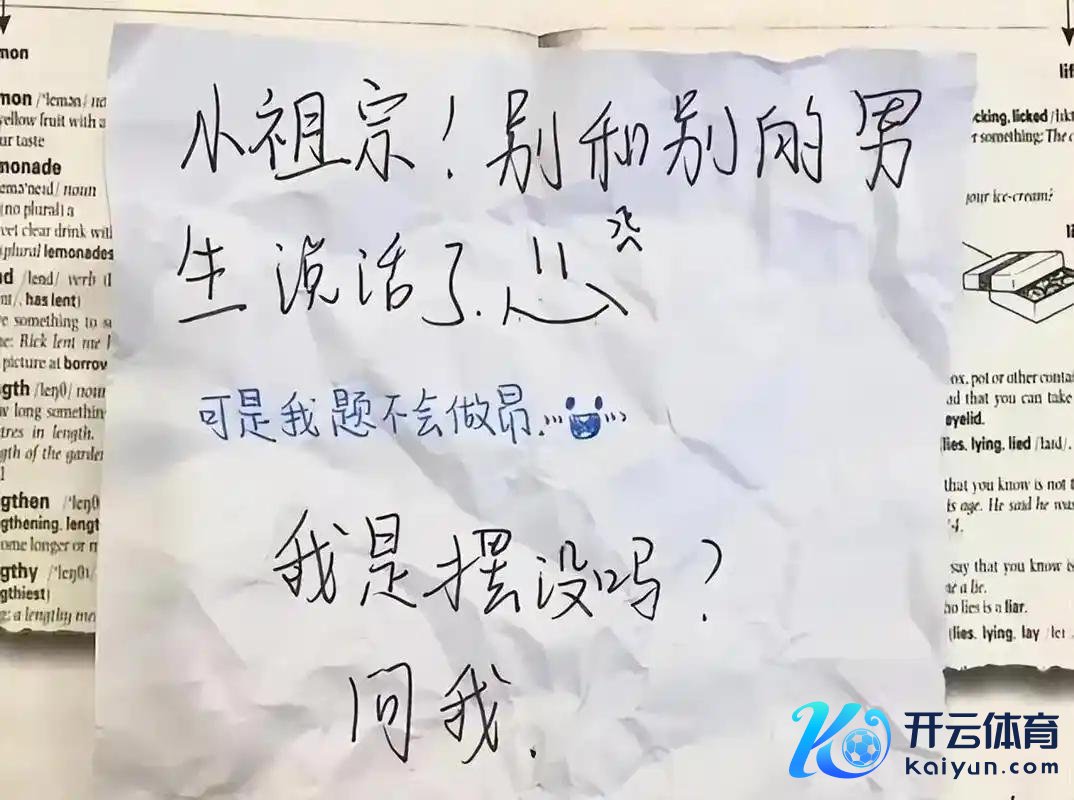 小祖宗！别和别的男
生说话了.
可是我题不会做昂...
我是摆设吗？
问我.
mon
mon /'lemən/ no
yellow fruit with a
ur taste
monade
emə'neɪd/ noun
(no plural) a
vet clear drink wit
plural lemonades
nd /lend/ verb
nt/, has lent)
e something to s
e: Rick lent me
picture at borrow
gth /leŋθ/ noun
w long somethin
tres in length.
gth of the garden
gthen /'leŋθ
gthening, lengt
ome longer or m
gthy /'leŋθɪ
gthiest)
g: a lengthy me
lif
cking, licked /lɪkt
r something: The c
your ice-cream?
ox, pot or other contai
ad that you can take
eyelid.
lies, lying, lied /laɪd/,
that you know is not t
is age. He said he was
4.
say that you know is
e a lie.
ho lies is a liar.
(lies, lying, lay /leɪ
开云体育
kaiyun.com